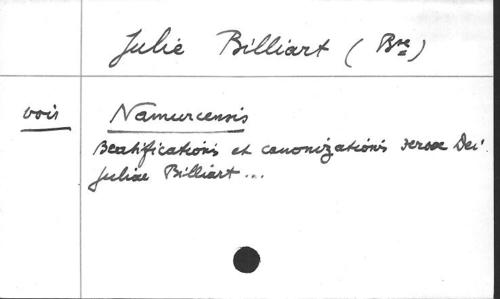 Julie Billiart (Bse)
voir
Namurcensis
Beatificationis et canonizationis servae Dei
Juliae Billiart ...